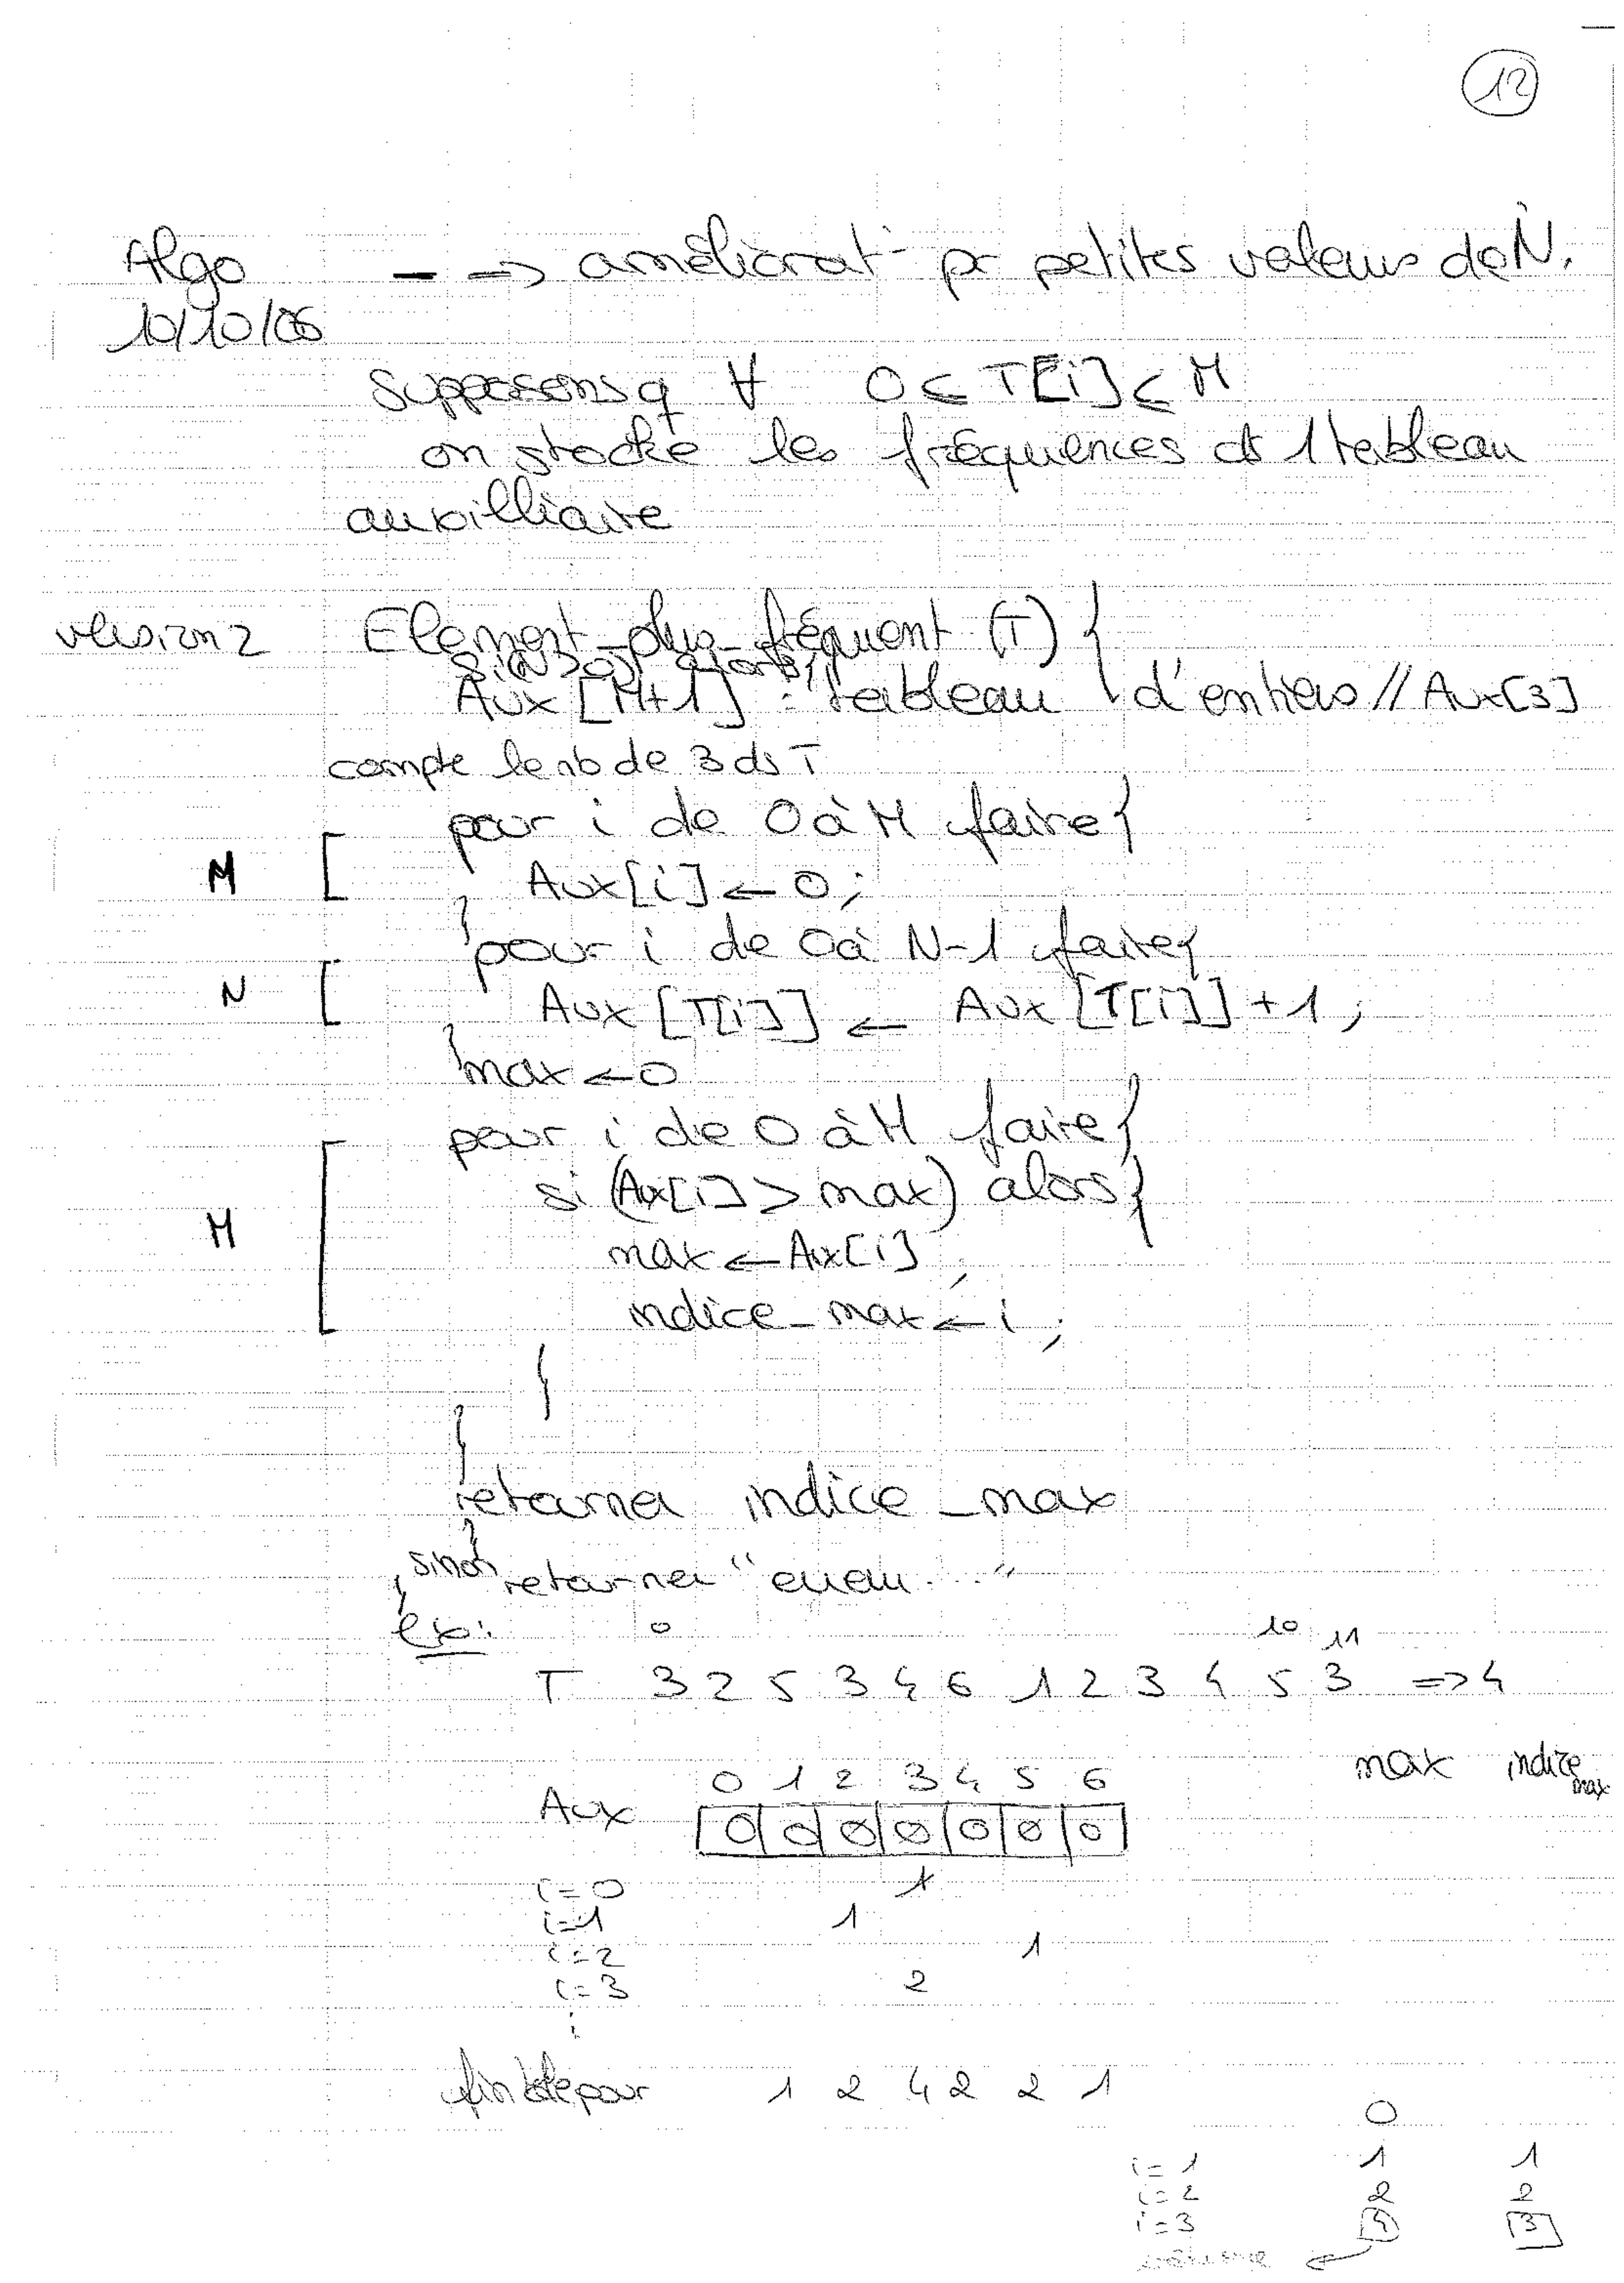 12
Algo — → améliorat° pr petites valeurs de N.
10/10/06
Supposons q ∀ 0 ≤ T[i] ≤ M
on stocke les fréquences ds 1 tableau
auxilliaire
version 2 Element_plus_fréquent (T) {
si (N>0) alors {
Aux [M+1] : tableau d'entiers // Aux[3]
compte le nb de 3 ds T
pour i de 0 à M faire {
M [ Aux[i] ← 0 ;
}
pour i de 0 à N-1 faire {
N [ Aux [T[i]] ← Aux [T[i]] + 1 ;
}
max ← 0
pour i de 0 à M faire {
si (Aux[i] > max) alors {
M [ max ← Aux[i] ;
indice_max ← i ;
}
}
retourner indice_max
}
sinon retourner "erreur..."
}
ex: 0 10 11
T 3 2 5 3 4 6 1 2 3 4 5 3 => 4
0 1 2 3 4 5 6 max indice max
Aux 0 0 0 0 0 0 0
i=0 1
i=1 1
i=2 1
i=3 2
:
fin de pour 1 2 4 2 2 1
0
i=1 1 1
i=2 2 2
i=3 4 3
←